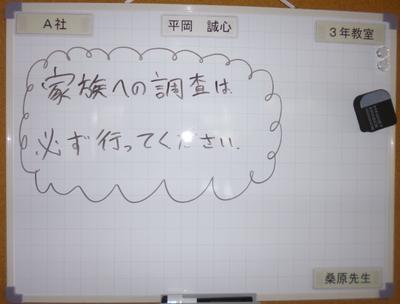 A社
平岡 誠心
3年教室
家族への調査は
必ず行ってください.
桑原先生